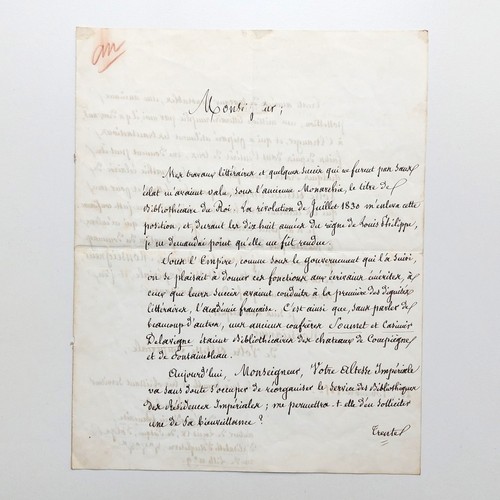 Monseigneur;
Mes travaux littéraires et quelques succès qui ne furent pas sans
éclat m'avaient valu, sous l'ancienne Monarchie, le titre de
Bibliothécaire du Roi. La révolution de Juillet 1830 m'enleva cette
position, et, durant les dix huit années du règne de Louis Philippe,
je ne demandai point qu'elle me fût rendue.
Sous l'Empire, comme sous le gouvernement qui l'a suivi,
on se plaisait à donner ces fonctions aux écrivains émérites, à
ceux que leurs succès avaient conduits à la première des dignités
littéraires, l'académie française. C'est ainsi que, sans parler de
beaucoup d'autres, mes anciens confrères Soumet et Casimir
Delavigne étaient Bibliothécaires des chateaux de Compiègne
et de Fontainebleau.
Aujourd'hui, Monseigneur, Votre Altesse Impériale
va sans doute s'occuper de réorganiser le Service des Bibliothèques
des Résidences Impériales; me permettra-t-elle d'en solliciter
une de Sa bienveillance?